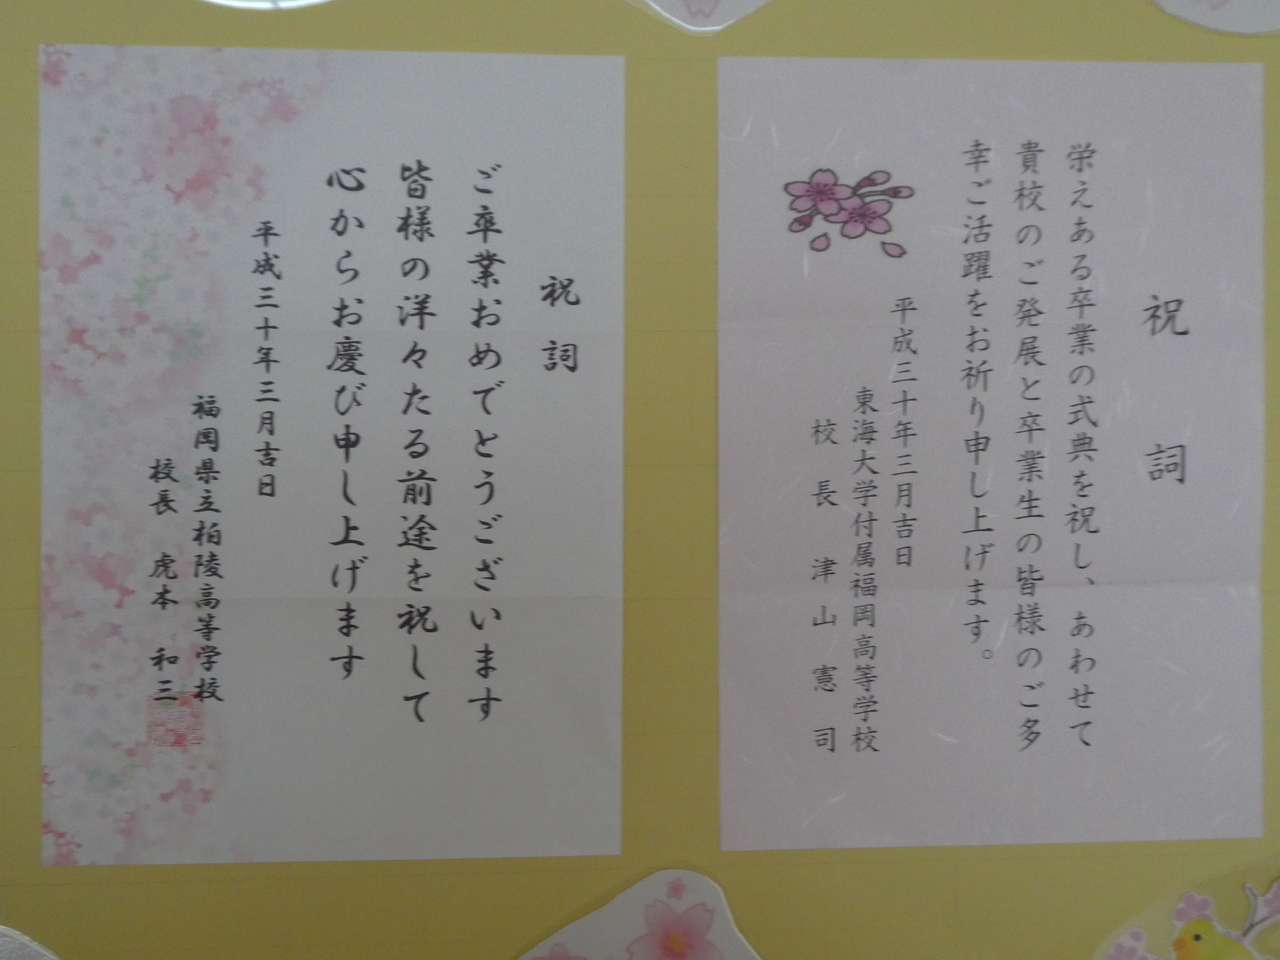 祝詞
栄えある卒業の式典を祝し、あわせて
貴校のご発展と卒業生の皆様のご多
幸ご活躍をお祈り申し上げます。
平成三十年三月吉日
東海大学付属福岡高等学校
校長 津山憲司
祝詞
ご卒業おめでとうございます
皆様の洋々たる前途を祝して
心からお慶び申し上げます
平成三十年三月吉日
福岡県立柏陵高等学校
校長 虎本 和三